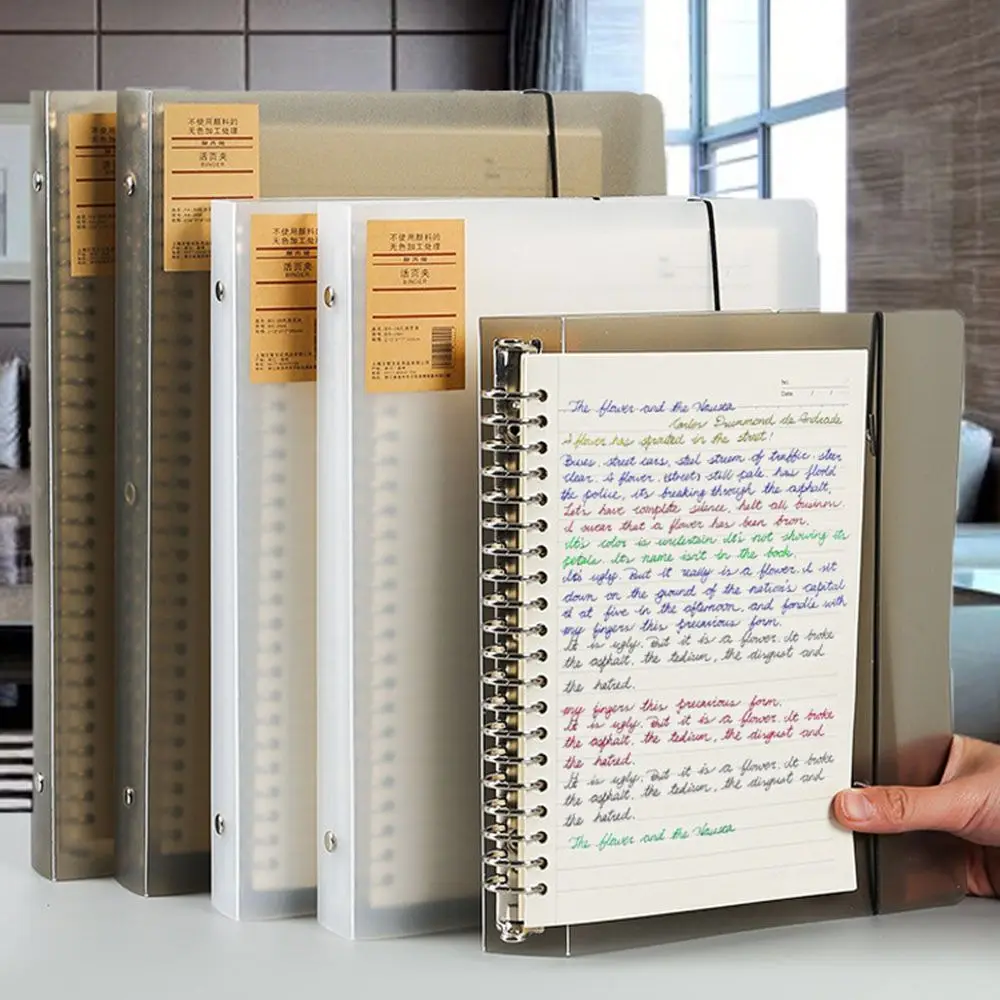 不使用颜料的
无色加工处理
活页夹
BINDER
不使用颜料的
无色加工处理
活页夹
BINDER
不使用颜料的
无色加工处理
活页夹
BINDER
No.
Date. / /
The flower and the Nausea
Carlos Drummond de Andrade
A flower has sprouted in the street!
Buses, street cars, steel stream of traffic. steer
clear. A flower, (street) still pale, has floold
the police, it's breaking through the asphalt,
Let's have complete silence, halt all business,
I swear that a flower has been bron.
It's color is undertain It's not showing its
petals. Its name isn't in the book,
It's ugly. But it really is a flower. I sit
down on the ground of the nation's capital
d at five in the afternoon, and fondle with
my fingers this precarious form.
It is ugly. But it is a flower. It broke
the asphalt, the tedium, the disgust and
the hatred.
my fingers this precarious form.
It is ugly. But it is a flower. It broke
the asphalt, the tedium, the disgust and
the hatred.
It is ugly. But it is a flower. It broke
the asphalt, the tedium, the disgust and
the hatred.
The flower and the Nausea